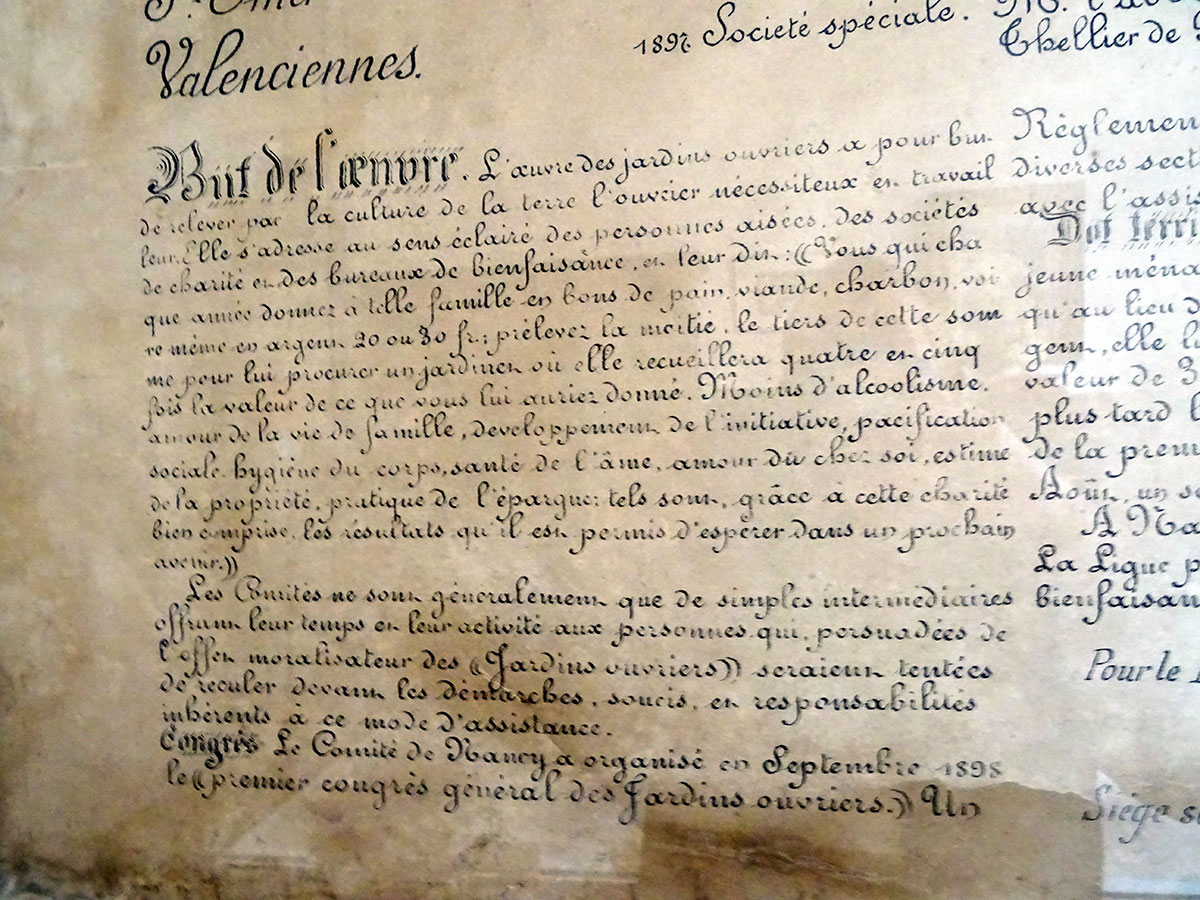 Valenciennes.
1897 Societé spéciale. M. l'
Thellier de
But de l'œuvre. L'œuvre des jardins ouvriers a pour but
de relever par la culture de la terre l'ouvrier nécessiteux et travail
leur. Elle s'adresse au sens éclairé des personnes aisées, des sociétés
de charité et des bureaux de bienfaisance, et leur dit: ((Vous qui cha
que année donnez à telle famille en bons de pain, viande, charbon, voi
re même en argent 20 ou 30 fr.; prélevez la moitié, le tiers de cette som
me pour lui procurer un jardinet où elle recueillera quatre et cinq
fois la valeur de ce que vous lui auriez donné. Moins d'alcoolisme,
amour de la vie de famille, développement de l'initiative, pacification
sociale, hygiène du corps, santé de l'âme, amour du chez soi, estime
de la propriété, pratique de l'épargne: tels sont, grâce à cette charité
bien comprise, les résultats qu'il est permis d'espérer dans un prochain
avenir.))
Les Comités ne sont généralement que de simples intermédiaires
offrant leur temps et leur activité aux personnes qui, persuadées de
l'effet moralisateur des ((Jardins ouvriers)) seraient tentées
de reculer devant les démarches, soucis, et responsabilités
inhérents à ce mode d'assistance.
Congrès Le Comité de Nancy a organisé en Septembre 1898
le ((premier congrès général des Jardins ouvriers.)) Un
Règlemen
diverses sect
avec l'assis
Dot terri
jeune ména
qu'au lieu d
gent, elle lu
valeur de 3
plus tard l
de la prem
Août, un se
A Na
La Ligue p
bienfaisan
Pour le
Siège s